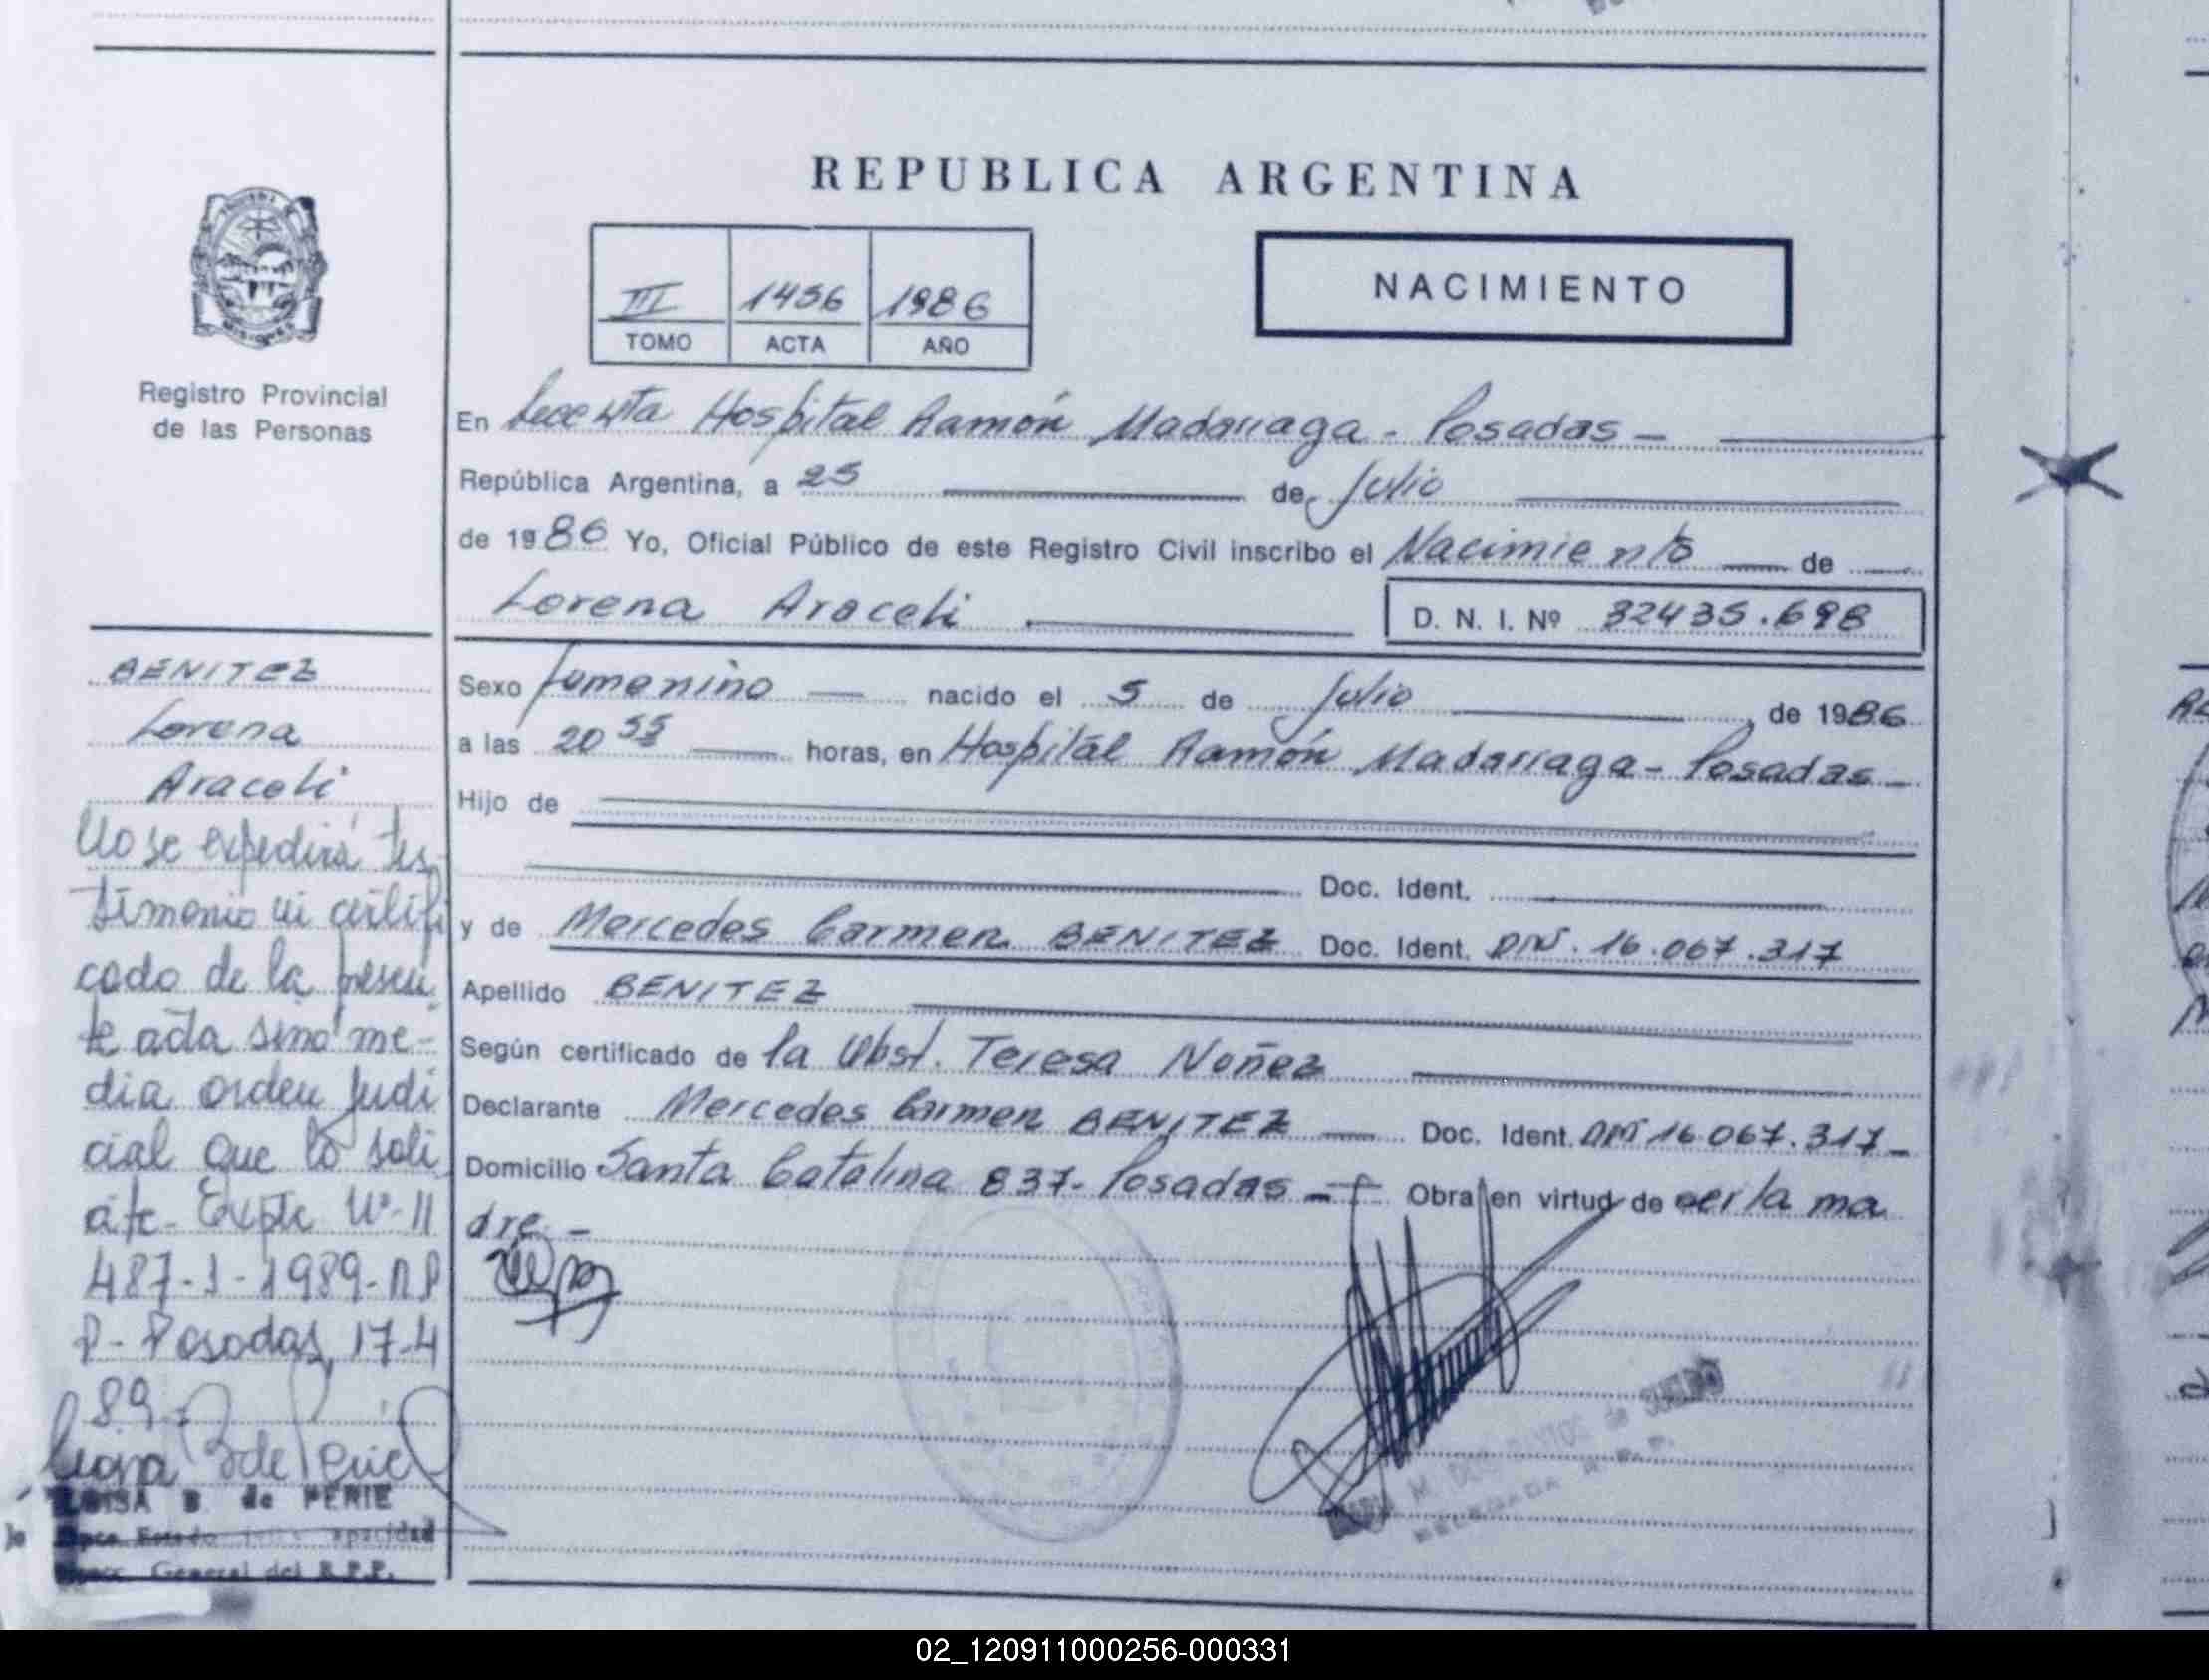 REPUBLICA ARGENTINA
III 1456 1986
TOMO ACTA AÑO
NACIMIENTO
Registro Provincial
de las Personas
En Hospital Ramón Madariaga - Posadas -
República Argentina, a 25 de Julio
de 1986 Yo, Oficial Público de este Registro Civil inscribo el Nacimiento de
Lorena Araceli D. N. I. Nº 32435.698
Sexo femenino nacido el 5 de Julio, de 1986
a las 20 55 horas, en Hospital Ramón Madariaga - Posadas -
Hijo de
Doc. Ident.
y de Mercedes Carmen BENITEZ Doc. Ident. DNI. 16.067.317
Apellido BENITEZ
Según certificado de la Obst. Teresa Nuñez
Declarante Mercedes Carmen BENITEZ Doc. Ident. DNI 16.067.317 -
Domicilio Santa Catalina 837 - Posadas - Obra en virtud de ser la ma
dre. -
BENITEZ
Lorena
Araceli
No se expedirá tes
timonio ni certifi
cado de la presen
te acta sino me-
dia orden judi
cial que lo soli
cite - Expte Nº 11
487-J-1989-R.P
P - Posadas, 17-4
89.
LUISA B. de PERIE
Dpto. Estado Capacidad
General del R.P.P.
MARIA M. DOS SANTOS de
DELEGADA R. P. P.
02_120911000256-000331